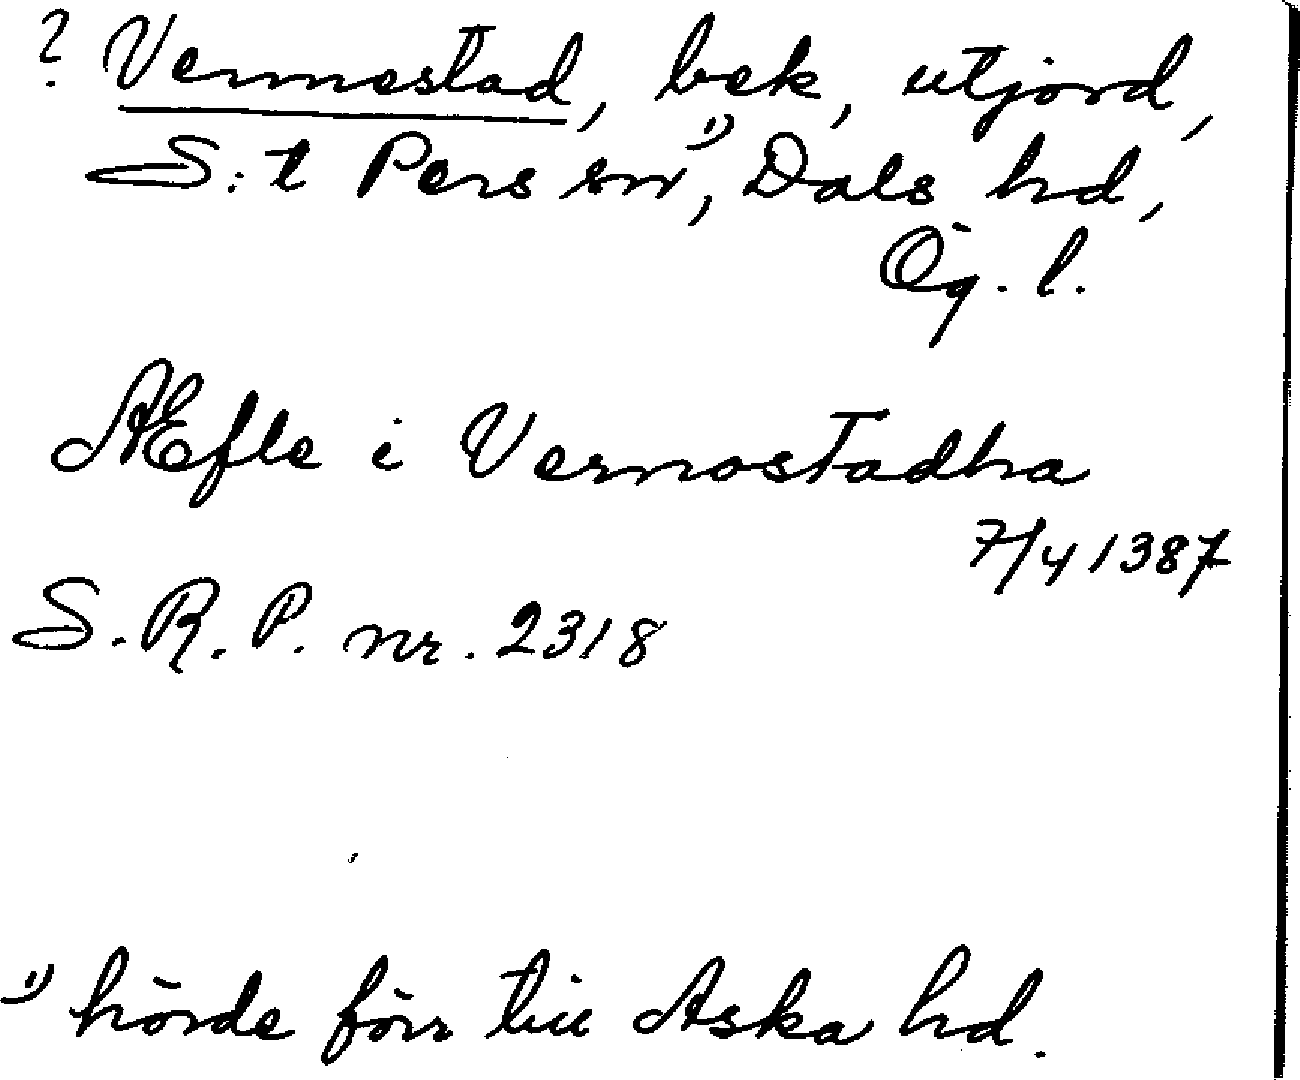 ? Vermestad, bek, utjord,
S:t Pers sn¹⁾, Dals hd,
Ög. l.
Æfle i Vernostadha
7/4 1387
S. R. P. nr. 2318
¹⁾ hörde förr till Aska hd.